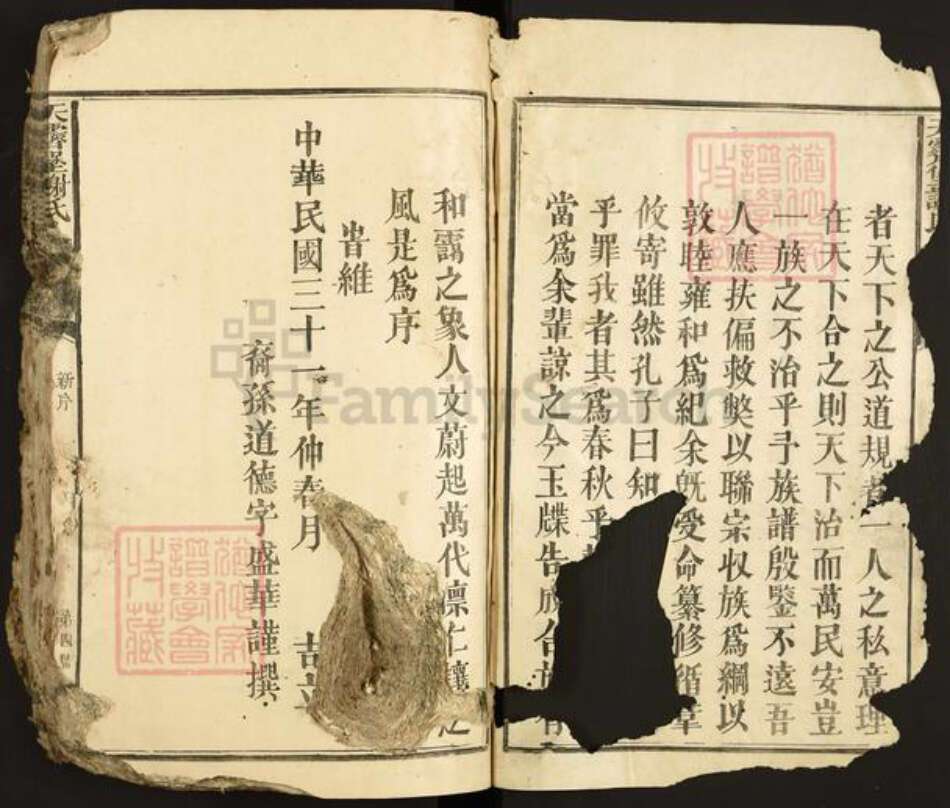 者天下之公道規者一人之私意理
在天下合之則天下治而萬民安豈
一族之不治乎予族譜殷鑒不遠吾
人應扶偏救弊以聯宗收族為綱以
敦陸雍和為紀余既受命纂修循章
攸寄雖然孔子曰知
乎罪我者其為春秋乎
當為余輩諒之今玉牒告成合
和靄之象人文蔚起萬代凛仁讓之
風是為序
旹維
中華民國三十一年仲春月 吉立
裔孫道德字盛華謹撰
新序
第四
譜學會
收藏
FamilySearch